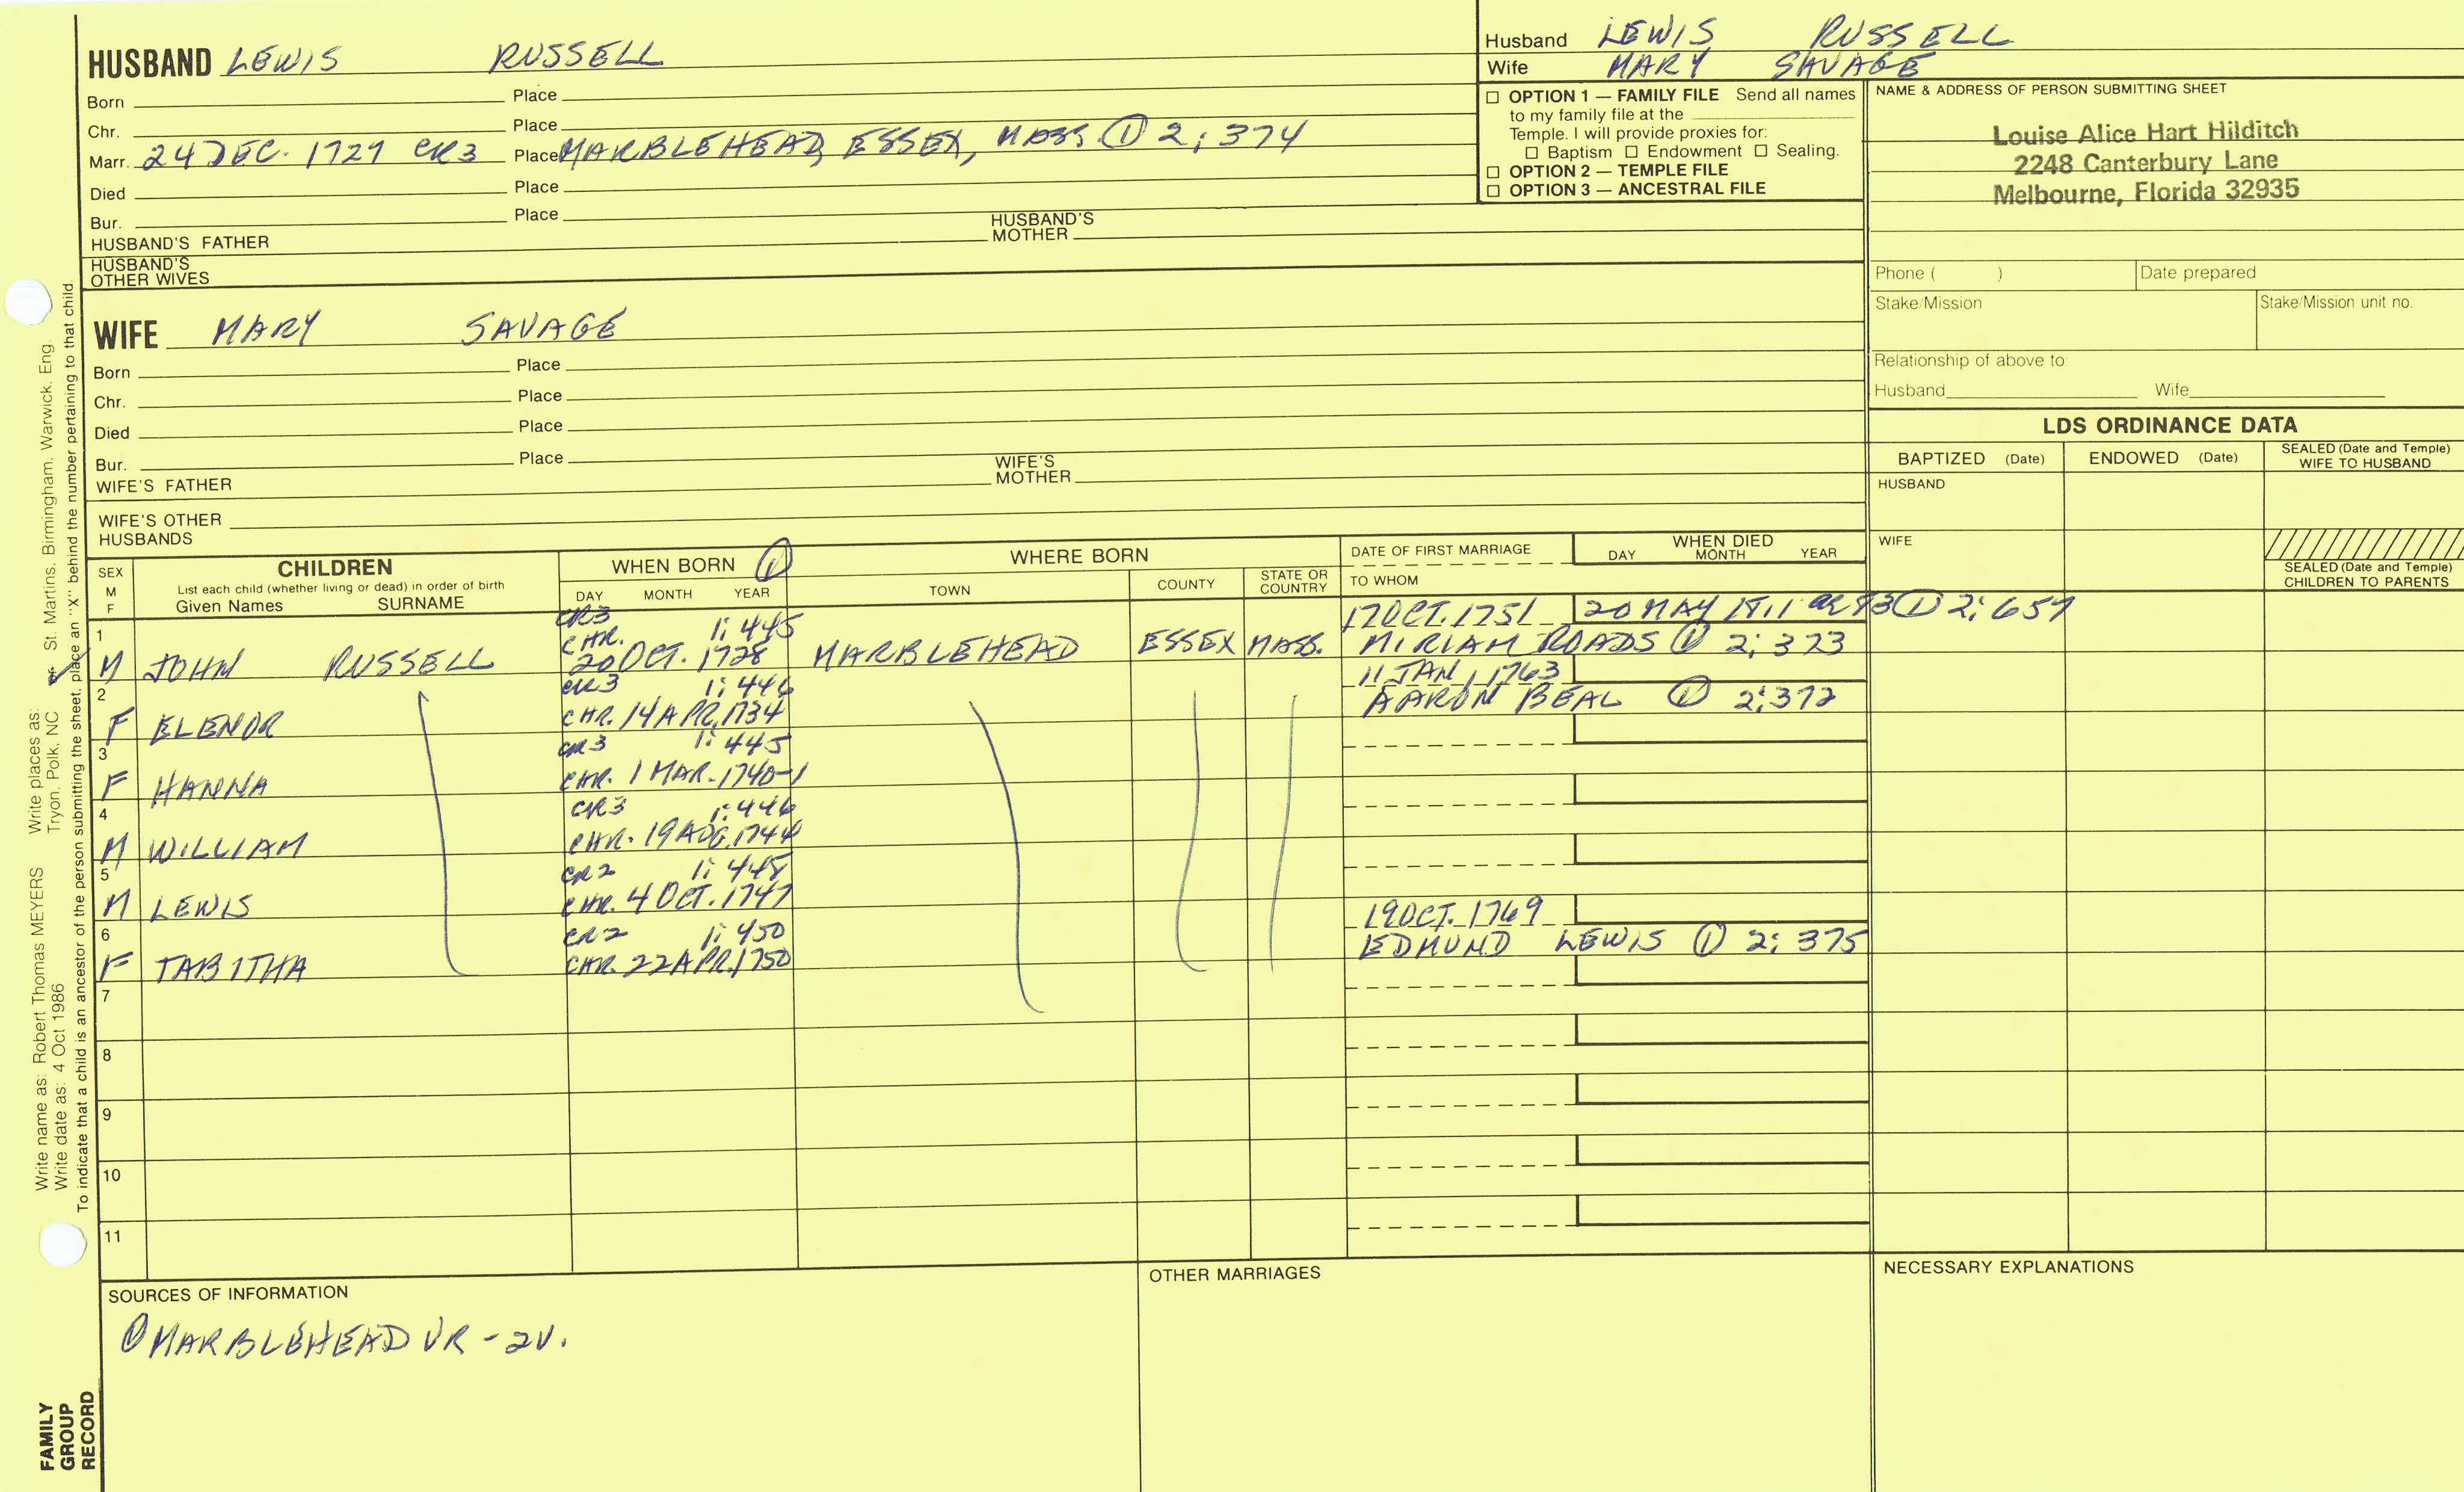 HUSBAND LEWIS RUSSELL
Born Place
Chr. Place
Marr. 24 DEC. 1727 CR3 Place MARBLEHEAD, ESSEX, MASS ① 2; 374
Died Place
Bur. Place
HUSBAND'S FATHER HUSBAND'S MOTHER
HUSBAND'S OTHER WIVES
Husband LEWIS RUSSELL
Wife MARY SAVAGE
☐ OPTION 1 — FAMILY FILE Send all names
to my family file at the
Temple. I will provide proxies for:
☐ Baptism ☐ Endowment ☐ Sealing.
☐ OPTION 2 — TEMPLE FILE
☐ OPTION 3 — ANCESTRAL FILE
NAME & ADDRESS OF PERSON SUBMITTING SHEET
Louise Alice Hart Hilditch
2248 Canterbury Lane
Melbourne, Florida 32935
Phone ( ) Date prepared
Stake/Mission Stake/Mission unit no.
Relationship of above to:
Husband Wife
WIFE MARY SAVAGE
Born Place
Chr. Place
Died Place
Bur. Place
WIFE'S FATHER WIFE'S MOTHER
WIFE'S OTHER HUSBANDS
LDS ORDINANCE DATA
BAPTIZED (Date) ENDOWED (Date) SEALED (Date and Temple) WIFE TO HUSBAND
HUSBAND
WIFE
SEALED (Date and Temple) CHILDREN TO PARENTS
SEX M F
CHILDREN
List each child (whether living or dead) in order of birth
Given Names SURNAME
WHEN BORN ①
DAY MONTH YEAR
WHERE BORN
TOWN COUNTY STATE OR COUNTRY
DATE OF FIRST MARRIAGE
TO WHOM
WHEN DIED
DAY MONTH YEAR
1 CR3 1; 445 17 OCT. 1751 20 MAY 1811 ① 2; 657
M JOHN RUSSELL CHR. 20 OCT. 1728 MARBLEHEAD ESSEX MASS. MIRIAM ROADS ① 2; 373
2 CR3 1; 446 11 JAN. 1763
F ELENOR CHR. 14 APR. 1734 AARON BEAL ① 2; 372
3 CR3 1; 445
F HANNA CHR. 1 MAR. 1740-1
4 CR3 1; 446
M WILLIAM CHR. 19 AUG. 1744
5 CR2 1; 445
M LEWIS CHR. 4 OCT. 1747
6 CR2 1; 450 19 OCT. 1769
F TABITHA CHR. 22 APR. 1750 EDMUND LEWIS ① 2; 375
7
8
9
10
11
SOURCES OF INFORMATION
① MARBLEHEAD VR - 2V.
OTHER MARRIAGES
NECESSARY EXPLANATIONS
Write name as: Robert Thomas MEYERS Write places as: St. Martins, Birmingham, Warwick, Eng.
Write date as: 4 Oct 1986 Tryon, Polk, NC
To indicate that a child is an ancestor of the person submitting the sheet, place an "X" behind the number pertaining to that child.
FAMILY
GROUP
RECORD